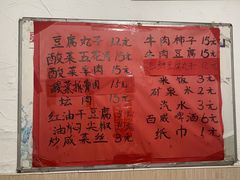 豆腐丸子 12元
酸菜五花肉 15元
酸菜羊肉 15元
酸菜排骨
坛肉 15元
红油干豆腐 3元
油焖尖椒 3元
炝咸菜丝 3元
牛肉柿子 15元
牛肉豆腐 15元
米饭 2元
矿泉水 2元
汽水 3元
百威啤酒 6元
纸巾 1元